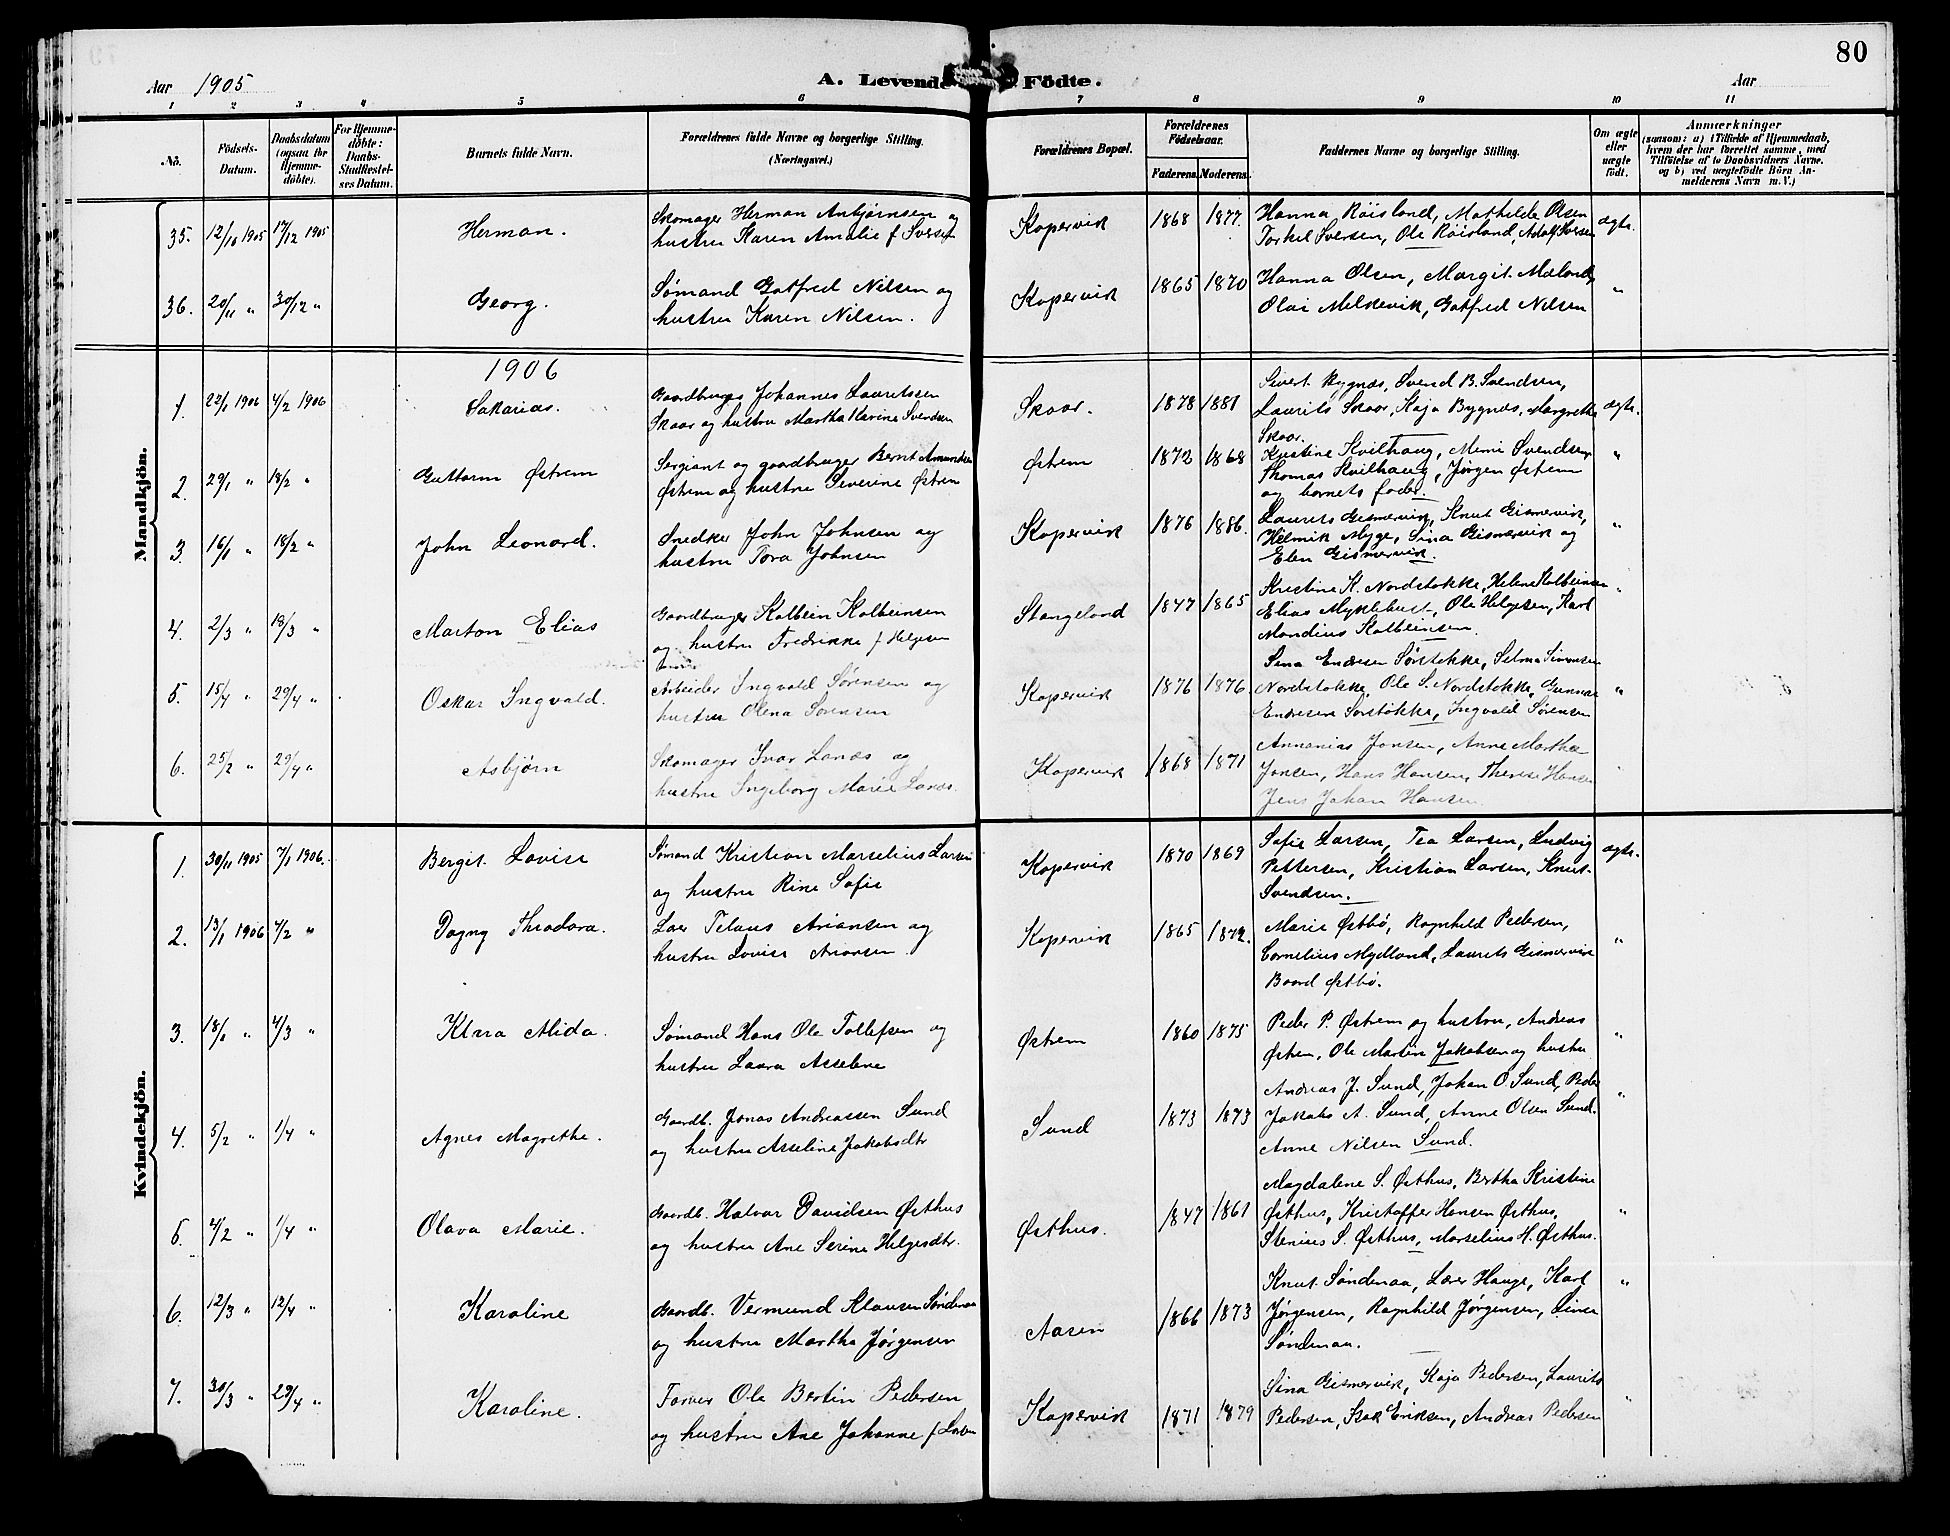 80
Aar 1905
A. Levende Födte.
Aar
1 2 3 4 5 6 7 8 9 10 11
No.
Födsels-Datum.
Daabsdatum (ogsaa for Hjemme-döbte).
For Hjemme-döbte: Daabs-Stadfæstel-ses Datum.
Barnets fulde Navn.
Forældrenes fulde Navne og borgerlige Stilling. (Næringsvei.)
Forældrenes Bopæl.
Forældrenes Födselsaar.
Faderens. Moderens.
Faddernes Navne og borgerlige Stilling.
Om ægte eller uægte födt.
Anmærkninger
(saasom: a) i Tilfælde af Hjemmedaab,
hvem der har forrettet samme, med
Tilföielse af to Daabsvidners Navne,
og b) ved uægtefödte Börn An-
melderens Navn m. V.)
Mandkjön.
35. 12/10 1905 17/12 1905 Herman. Skomager Herman Anbjørnsen og Kopervik 1868 1877. Hanna Røisland, Mathilde Olsen ægte.
hustru Karen Amalie f Torkel Iversen, Ole Røisland, Adolf Iversen
36. 20/11 " 30/12 " Georg. Sømand Gotfred Nilsen og Kopervik 1865 1870 Hanna Olsen, Margit Mæland, "
hustru Karen Nilsen. Olai Melkevik, Gotfred Nilsen
1906
1. 22/1 1906 4/2 1906 Sakarias. Gaardbruger Johannes Lauritssen Skaar. 1878 1881 Sivert Bygnæs, Svend B. Svendsen, ægte.
Skaar og hustru Martha Karine Svendsen Laurits Skaar, Kaja Bygnæs, Margretha
Skaar.
2. 29/1 " 18/2 " Guttorm Østrem Sergiant og gaardbruger Bernt Amundsen Østrem 1872 1868 Kristine Kvilhaug, Mimi Svendsen "
Østrem og hustru Severine Østrem Thomas Kvilhaug, Jørgen Østrem
og barnets fader.
3. 16/1 " 18/2 " John Leonard. Snedker John Johnsen og Kopervik 1876 1886. Laurits Gismervik, Knut Gismervik, "
hustru Tora Johnsen Helmik Myge, Sina Gismervik og
Elen Gismervik.
4. 2/3 " 18/3 " Marton Elias Gaardbruger Kolbein Kolbeinsen Stangeland 1847 1865 Kristine K. Nordstokke, Helene Kolbeinsen "
og hustru Fredrikke f Helgesen Elias Myklebust, Ole Helgesen, Karl
Mandius Kolbeinsen.
5. 15/4 " 29/4 " Oskar Ingvald. Arbeider Ingvald Sørensen og Kopervik 1876 1876 Sina Endresen Sørstokke, Selma Simonsen "
hustru Olena Sørensen Nordstokke, Ole S. Nordstokke, Gunnar
Endresen Sørstokke, Ingvald Sørensen
6. 25/2 " 29/4 " Asbjørn Skomager Ivar Lanæs og Kopervik 1868 1871 Annanias Jonsen, Anne Martha
hustru Ingeborg Marie Lanæs. Jonsen, Hans Hansen, Therese Hansen
Jens Johan Hansen.
Kvindekjön.
1. 30/11 1905 7/1 1906. Bergit Lovise Sømand Kristian Marselius Larsen Kopervik 1870 1869 Sofie Larsen, Tea Larsen, Ludvig ægte.
og hustru Rine Sofie Pettersen, Kristian Larsen, Knut
Svendsen.
2. 13/1 1906 4/2 " Dagny Theodora. Ariansen og Kopervik 1865 1872. Marie Østbø, Ragnhild Pedersen, "
hustru Lovise Ariansen. Cornelius Mydland, Laurits Gismervik
Baard Østbø.
3. 18/1 " 4/3 " Klara Alida. Sømand Hans Ole Tollefsen og Østrem 1860 1875 Peder P. Østrem og hustru, Andreas "
hustru Laura Asseline Østrem, Ole Martin Jakobsen og hustru
4. 5/2 " 1/4 " Agnes Magrethe. Gaardb. Jonas Andreassen Sund Sund 1873 1873 Andreas J. Sund, Johan O Sund, Peder "
og hustru Asseline Jakobsdtr Jakobs A. Sund, Anne Olsen Sund.
Anne Nilsen Sund.
5. 4/2 " 1/4 " Olava Marie. Gaardb. Halvor Davidsen Østhus Østhus. 1847 1861 Magdalene S. Østhus, Bertha Kristine "
og hustru Ane Serine Helgesdtr. Østhus, Kristoffer Hansen Østhus,
Stenius S. Østhus, Marselius H. Østhus.
6. 12/3 " 12/4 " Karoline Gaardb. Vermund Klausen Søndenaa Aasen 1866 1873 Knut Søndenaa, Lærer Hauge, Karl "
og hustru Martha Jørgensen Jørgensen, Ragnhild Jørgensen, Sina
Søndenaa.
7. 30/3 " 29/4 " Karoline. Farver Ole Bertin Pedersen Kopervik 1871 1879 Sina Gismervik, Kaja Pedersen, Laurits "
og hustru Ane Johanne f Larsen Pedersen, Isak Eriksen, Andreas Pedersen